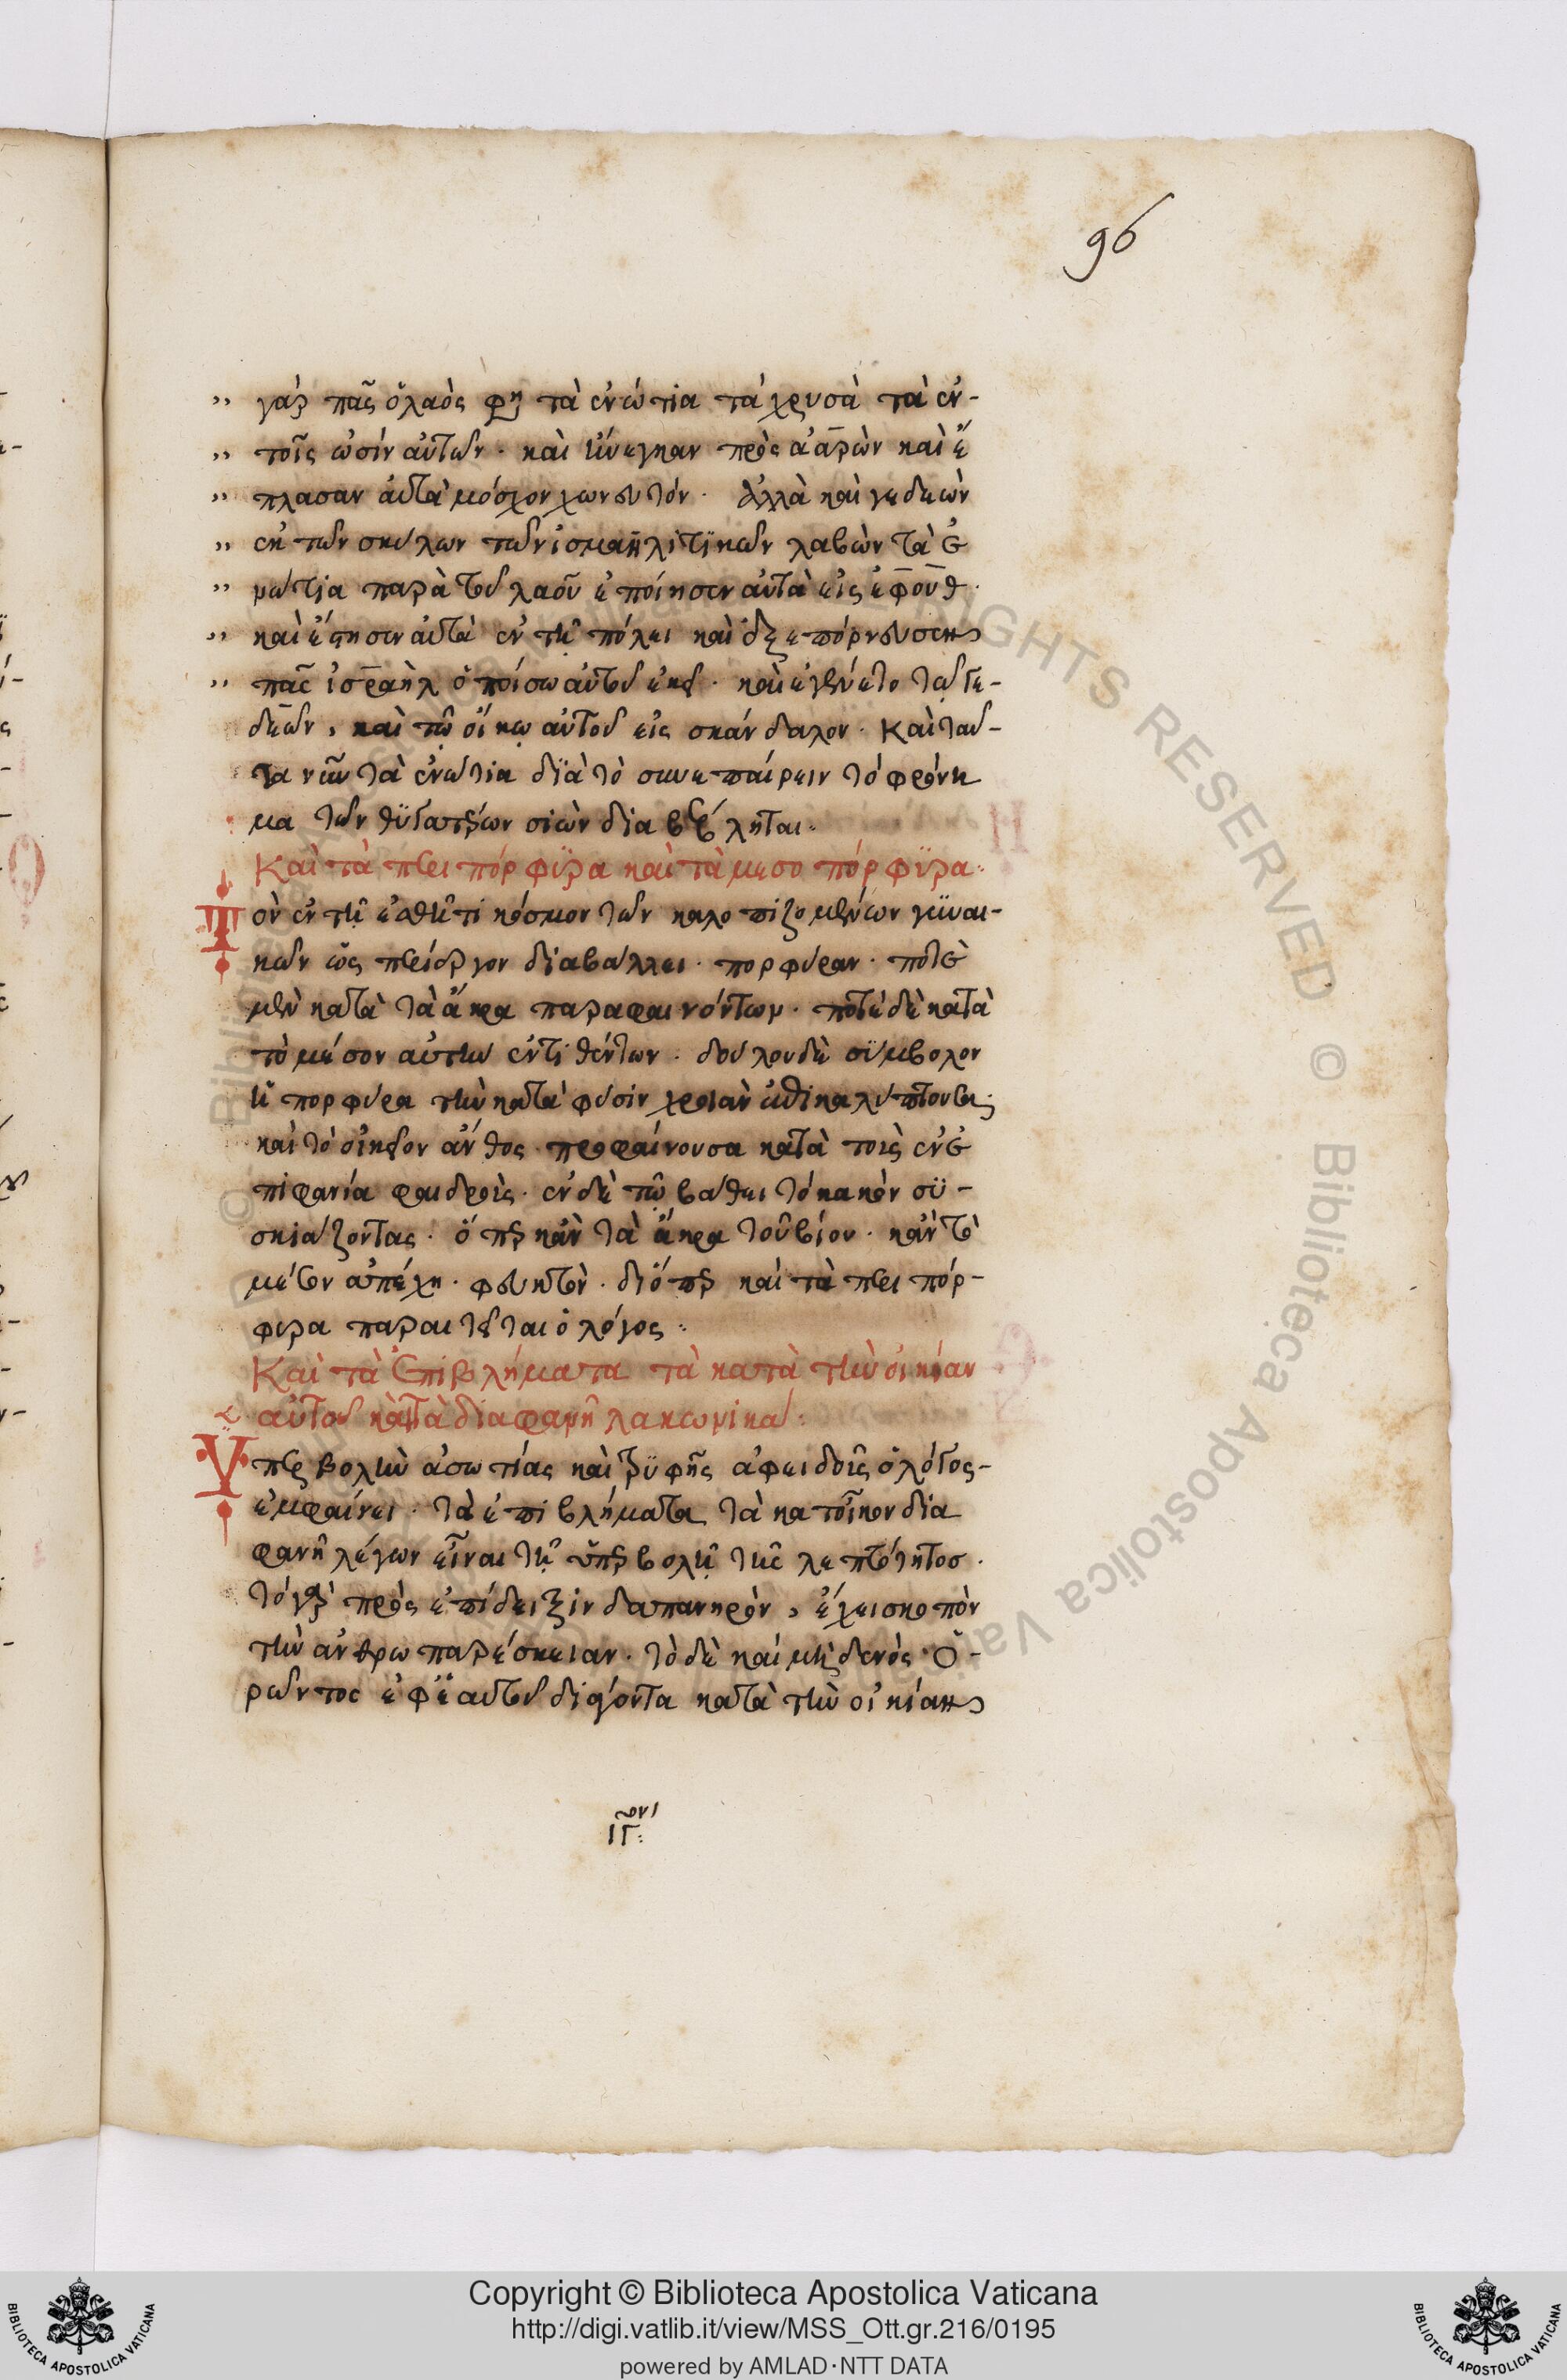 96
,, γὰρ πᾶς ὁ λαὸς φη τὰ ἐνώτια τὰ χρυσὰ τὰ ἐν-
,, τοῖς ὠσὶν αὐτῶν · καὶ ἤνεγκαν πρὸς ἀαρὼν καὶ ἔ
,, πλασαν αὐτὰ μόσχον χωνευτόν · ἀλλὰ καὶ γεδεὼν
,, ἐκ τῶν σκύλων τῶν ἰσμαηλιτϊκῶν λαβὼν τὰ ἐ
,, νώτια παρὰ τοῦ λαοῦ ἐποίησεν αὐτὰ εἰς ἐφοὺθ ·
,, καὶ ἔστησεν αὐτὰ ἐν τῇ πόλει καὶ ἐξεπόρνευσεν
,, πᾶς ἰσραὴλ ὀπίσω αὐτοῦ ἐκεῖ · καὶ ἐγένετο τῷ γε-
δεὼν, καὶ τῷ οἴκῳ αὐτοῦ εἰς σκάνδαλον · Καὶ ταῦ-
τα νῦν τὰ ἐνώτια δϊὰ τὸ συνεπαίρειν τὸ φρόνη
μα τῶν θϋγατέρων σιὼν διαβέβληται·
Καὶ τὰ περιπόρφϋρα καὶ τὰ μεσοπόρφϋρα:
Τὸν ἐν τῇ ἐσθῆτι κόσμον τῶν καλοπιζομένων γϋναι-
κῶν ὡς περίεργον διαβάλλει · πορφύραν · ποτὲ
μὲν κατὰ τὰ ἄκρα παραφαινόντων · ποτὲ δὲ κατὰ
τὸ μέσον αὐτὴν ἐντιθέντων · δόλου δὲ σϋμβολον
ἡ πορφύρα τὴν κατὰ φύσιν χροιὰν ἐπικαλύπτουσα·
καὶ τὸ οἰκεῖον ἄνθος προφαίνουσα κατὰ τοὺς ἐν ἐ
πιφανία φαιδροὺς · ἐν δὲ τῷ βάθει τὸ κακὸν σϋ-
σκιάζοντας · ὅπερ κἂν τὰ ἄκρα τοῦ βίου · κἂν τὸ
μέσον ἀπέχῃ · φευκτὸν · διόπερ καὶ τὰ περιπόρ-
φυρα παραιτεῖται ὁ λόγος:
Καὶ τὰ ἐπιβλήματα τὰ κατὰ τὴν οἰκίαν
αὐτοῦ κατὰ διαφανῆ λακωνικά:
Ὑπερβολὴν ἀσωτίας καὶ τρϋφῆς ἀφειδοῦς ὁ λόγος-
ἐμφαίνει · τὰ ἐπιβλήματα τὰ κατοῖκον δια
φανῆ λέγων εἶναι τῇ ὑπερβολῇ τῆς λεπτότητος ·
τὸ γὰρ πρὸς ἐπίδειξιν δαπανηρὸν, ἔχει σκοπὸν
τὴν ἀνθρωπαρέσκειαν · τὸ δὲ καὶ μηδενὸς ὁ-
ρῶντος ἐφ ἑαυτοῦ διάγοντα κατὰ τὴν οἰκίαν
Copyright © Biblioteca Apostolica Vaticana
http://digi.vatlib.it/view/MSS_Ott.gr.216/0195
powered by AMLAD·NTT DATA